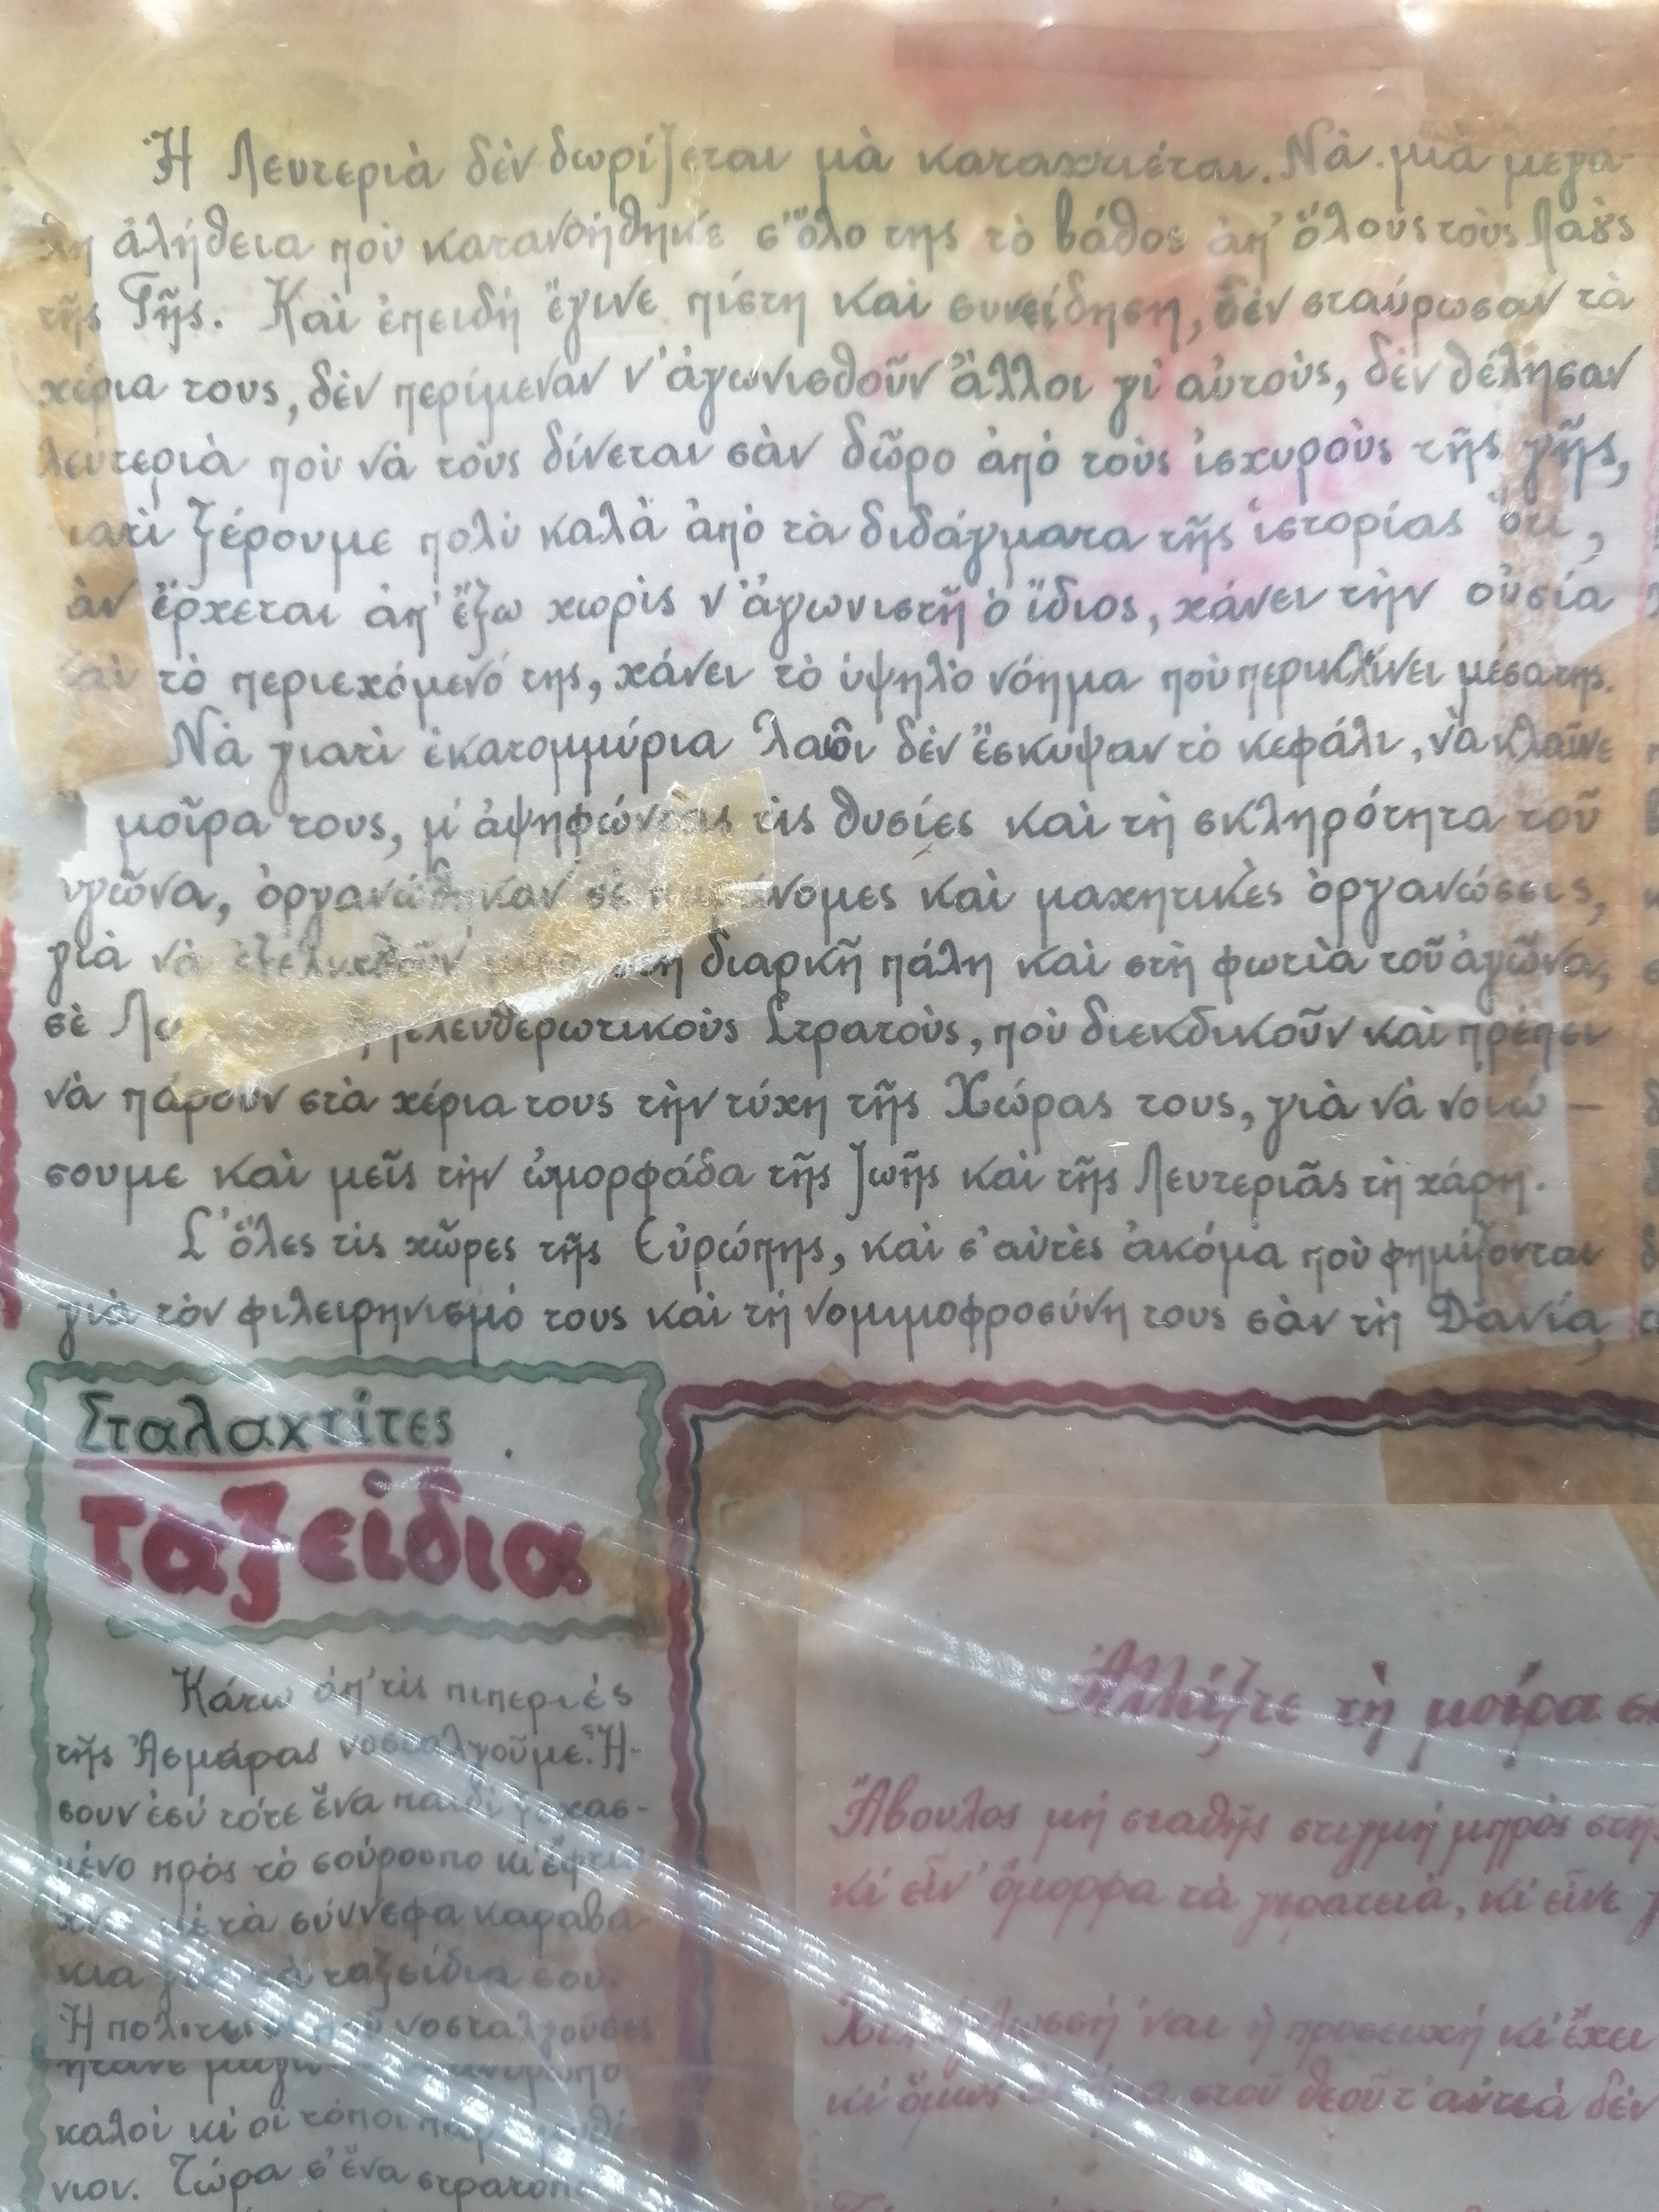 Ἡ Λευτεριὰ δὲν δωρίζεται μὰ καταχτιέται. Νὰ μιὰ μεγά-
λη ἀλήθεια ποὺ κατανοήθηκε σ' ὅλο της τὸ βάθος ἀπ' ὅλους τοὺς Λαοὺς
τῆς Γῆς. Καὶ ἐπειδὴ ἔγινε πίστη καὶ συνείδηση, δὲν σταύρωσαν τὰ
χέρια τους, δὲν περίμεναν ν' ἀγωνισθοῦν ἄλλοι γι' αὐτούς, δὲν θέλησαν
λευτεριὰ ποὺ νὰ τοὺς δίνεται σὰν δῶρο ἀπὸ τοὺς ἰσχυροὺς τῆς γῆς,
ιατὶ ξέρουμε πολὺ καλὰ ἀπὸ τὰ διδάγματα τῆς ἱστορίας ὅτι,
ἂν ἔρχεται ἀπ' ἔξω χωρὶς ν' ἀγωνιστῆ ὁ ἴδιος, χάνει τὴν οὐσία
καὶ τὸ περιεχόμενό της, χάνει τὸ ὑψηλὸ νόημα ποὺ περικλίνει μέσα της.
Νὰ γιατὶ ἑκατομμύρια λαοὶ δὲν ἔσκυψαν τὸ κεφάλι, νὰ κλαῖνε
μοῖρα τους, μ' ἀψηφώντας τὶς θυσίες καὶ τὴ σκληρότητα τοῦ
γῶνα, ὀργανώθηκαν σὲ παράνομες καὶ μαχητικὲς ὀργανώσεις,
γιὰ νὰ ἐξελιχθοῦν μέσα στὴ διαρκῆ πάλη καὶ στὴ φωτιὰ τοῦ ἀγῶνα,
σὲ ελευθερωτικοὺς Στρατούς, ποὺ διεκδικοῦν καὶ πρέπει
νὰ πάρουν στὰ χέρια τους τὴν τύχη τῆς Χώρας τους, γιὰ νὰ νοιώ –
σουμε καὶ μεῖς τὴν ὠμορφάδα τῆς ζωῆς καὶ τῆς Λευτεριᾶς τὴ χάρη.
Σ' ὅλες τὶς χῶρες τῆς Εὐρώπης, καὶ σ' αὐτὲς ἀκόμα ποὺ φημίζονται
γιὰ τὸν φιλειρηνισμό τους καὶ τὴ νομιμοφροσύνη τους σὰν τὴ Δανία,
Σταλαχτίτες
ταξείδια
Κάτω ἀπ' τὶς πιπεριές
τῆς Ἀσμάρας νοσταλγοῦμε. Ἤ-
σουν ἐσύ τότε ἕνα παιδὶ ξεχασ-
μένο πρὸς τὸ σούρουπο κι' ἔφτια
χνες μὲ τὰ σύννεφα καραβά-
κια γιὰ τὰ ταξείδια σου.
Ἡ πολιτεία ποὺ νοσταλγοῦσες
ἤτανε
καλοί κι' οἱ τόποι
νιον. Τώρα σ' ἕνα στρατοπ
Ἀλλάξτε τὴ μοίρα σ
Ἄβουλος μὴ σταθῆς στιγμὴ μπρὸς στὴ
κι' εἶν' ὄμορφα τὰ γερατειά, κι' εἶνε
'ναι ἡ προσευχὴ κι' ἔχει
κι' ὅμως στοῦ θεοῦ τ' αὐτιὰ δὲν